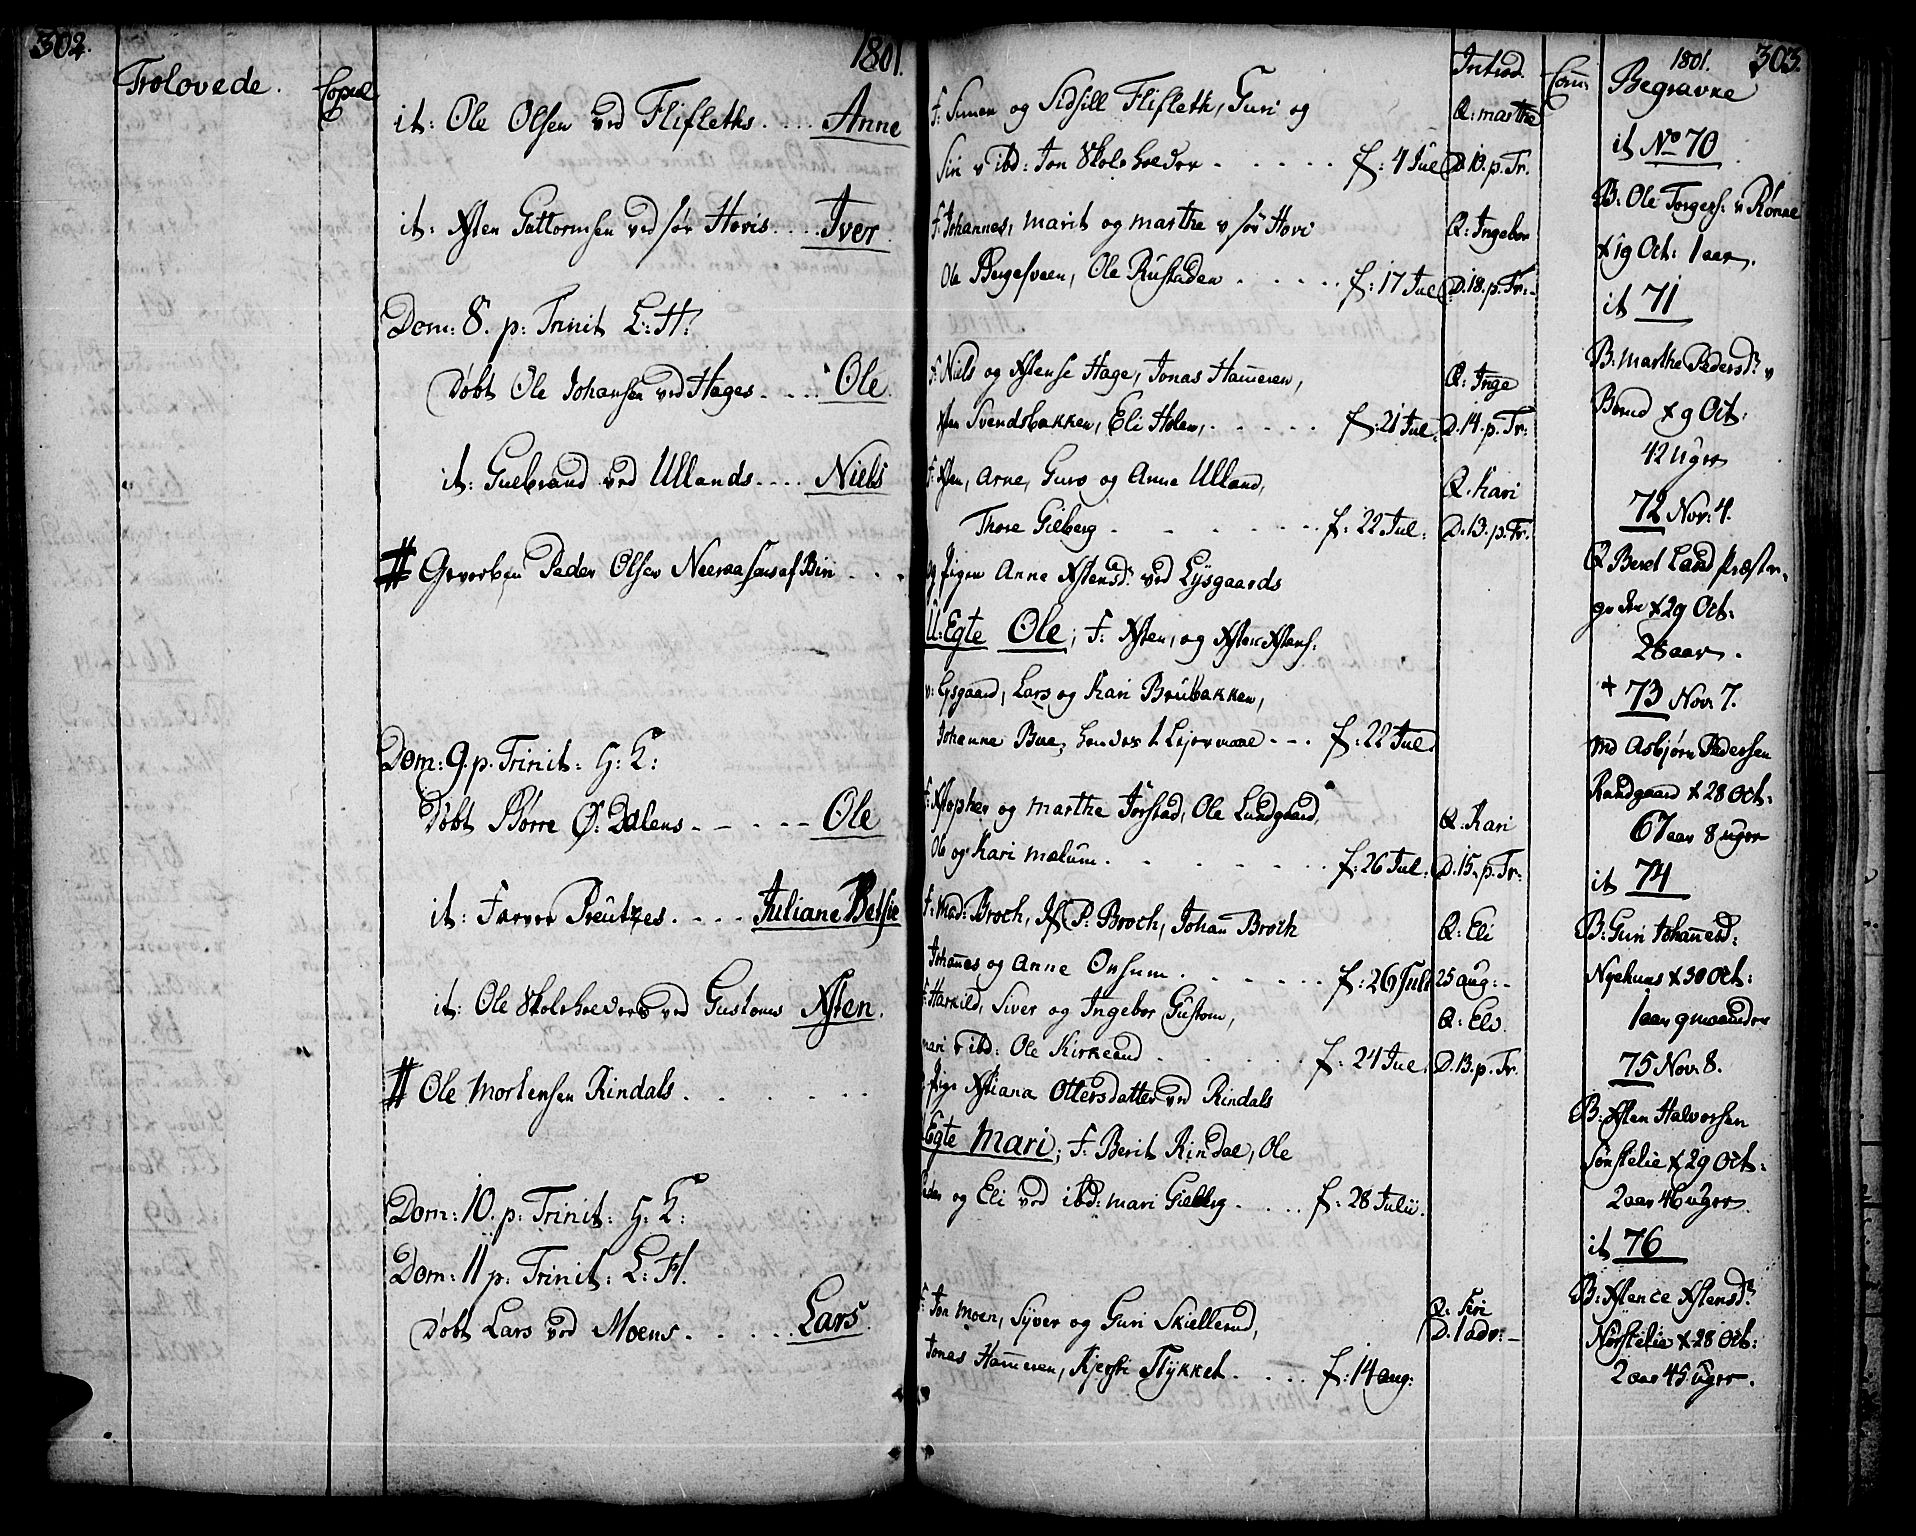 302.
Trolovede.
Copul
1801.
it: Ole Olsen ved Flifleths.... Anne
it: Asten Guttormsen ved sør Hovis.... Iver
Dom: 8. p: Trinit L: H:
Døbt Ole Johansen ved Hages.... Ole
it: Gulbrand ved Ullands.... Niels
# Geworben Peder Olsen af Biri...
Dom: 9. p. Trinit: H: K:
Døbt Børre Ø: Dalens..... Ole
it: Farver Preutzes.... Juliane Betsie
it: Ole Skoleholders ved Gustoms Asten.
# Ole Mortensen Rindals......
Dom: 10. p: Trinit: H: K:
Dom: 11 p: Trinit: L: H.
Døbt Lars ved Moens..... Lars
F: Simen og Sidsill Flifleth, Guri og
Siri v ibd: Jon Skoleholder..... f: 4 Jul
F: Johannes, Marit og Marthe v sør Hovi
Ole Bergesveen, Ole Rustaden..... f: 17 Jul
F: Niels og Astense Hage, Jonas Hammeren,
Asten Svendsbakken, Eli Holen,..... f: 21 Jul.
F: Asten, Arne, Guro og Anne Ulland,
Thore Gilberg...... f: 22 Jul:
og Pigen Anne Astensd: ved Lysgaards
U: Egte Ole; F: Asten, og Asten Astens:
v: Lysgaard, Lars og Kari Brubakken,
Johanne Bue, hendes 1 Leiermaal... f: 22 Jul
F: Astopher og Marthe Jørstad, Ole Lundgaard,
Ole og Kari Mælum...... f: 26 Jul:
F: Mad: Broch, Jf. P: Broch, Johan Broch
Johannes og Anne Onsum..... f: 26 Juli
F: Harkild, Siver og Ingebor Gustom,
Mari v ibd: Ole Kirkerud..... f: 24 Jul.
Pige Astiana Ottersdatter ved Rindals
Egte Mari; F: Berit Rindal, Ole
Peder og Eli ved ibd: Mari Gilberg.... f: 28 Julii.
F: Jon Moen, Syver og Guri Skiellerud,
Jonas Hammeren, Kjersti Stykket.... f: 14 aug:
Introd.
Q: Marthe
D. 13. p. Tr.
Q: Ingebor
D. 18. p. Tr:
Q: Inge
D. 14. p. Tr:
Q. Kari
D. 13. p. Tr.
Q. Kari
D. 15. p. Tr:
Q: Eli
25 aug:
Q: Els.
D. 13. p. Tr.
Q: Siri
D. 1 adv:
Com:
1801. 303.
Begravne
it No 70
B: Ole Torgers: v Rønne
x 19 Oct: 1 aar.
it 71
B: Marthe Pedersd: v
x 9 Oct:
42 Uger
72 Nov: 4.
Q Beret Land Præste-
x 29 Oct:
28 aar.
+ 73 Nov. 7.
md Asbjørn Pedersen
Raadgaard x 28 Oct:
67 aar 8 uger
it 74
B: Guri Johannesd:
Nyehuus x 30 Oct:
1 aar 9 maaneder
75 Nov. 8.
B: Asten Halvorsen
Sørstelie x 29 Oct:
2 aar 46 uger
it 76
B: Astence Astensd:
Nørstelie x 28 Oct:
2 aar 45 Uger.